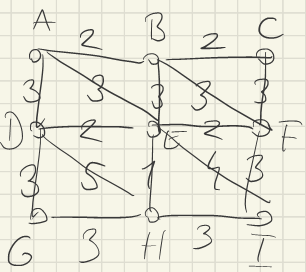 A B C
2 2
3 3 3 3 3
D 2 E 2 F
3 5 1 4 3
G 3 H 3 I